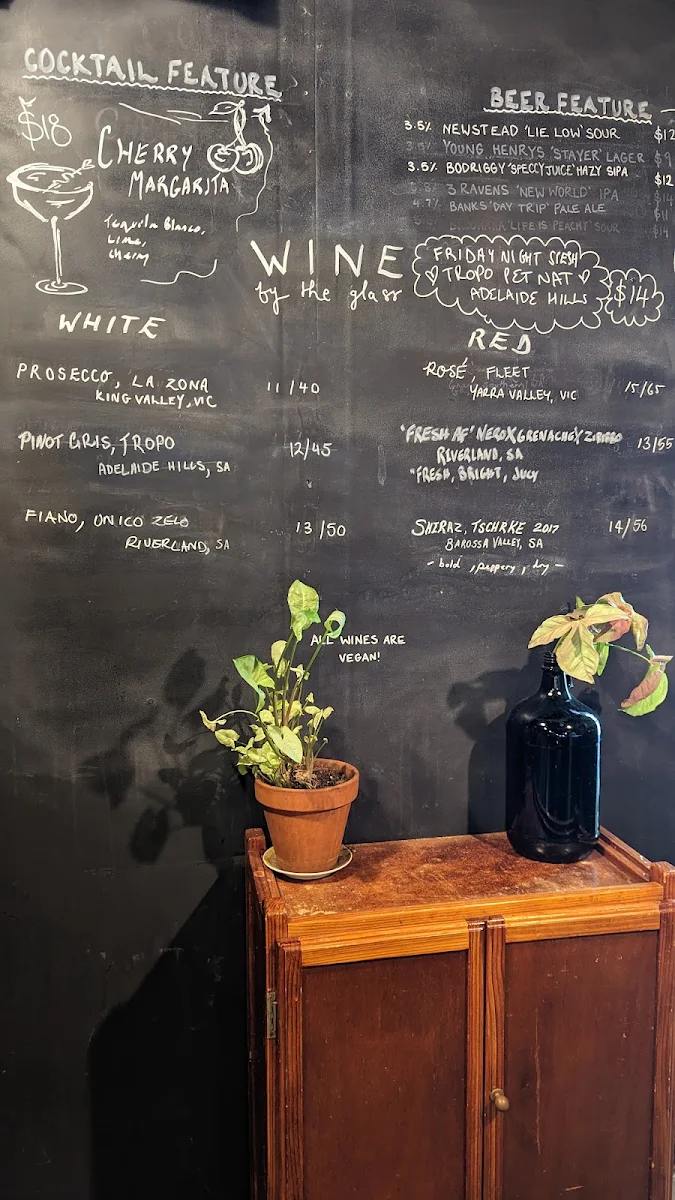 COCKTAIL FEATURE
$18
CHERRY
MARGARITA
Tequila Blanco,
Lime,
cherry
BEER FEATURE
3.5% NEWSTEAD 'LIE LOW' SOUR $12
3.5% YOUNG HENRYS 'STAYER' LAGER $9
3.5% BODRIGGY 'SPECCY JUICE' HAZY SIPA $12
3 RAVENS 'NEW WORLD' IPA $14
4.7% BANKS 'DAY TRIP' PALE ALE $11
'LIFE IS PEACHY' SOUR $14
WINE
by the glass
FRIDAY NIGHT SESH
TROPO PET NAT
ADELAIDE HILLS
$14
WHITE
PROSECCO, LA ZONA 11/40
KING VALLEY, VIC
PINOT GRIS, TROPO 12/45
ADELAIDE HILLS, SA
FIANO, UNICO ZELO 13/50
RIVERLAND, SA
RED
ROSÉ, FLEET
YARRA VALLEY, VIC 15/65
"FRESH AF" NERO X GRENACHE X ZIBIBBO 13/55
RIVERLAND, SA
"FRESH, BRIGHT, JUCY
SHIRAZ, TSCHRKE 2017 14/56
BAROSSA VALLEY, SA
- bold, peppery, dry -
ALL WINES ARE
VEGAN!